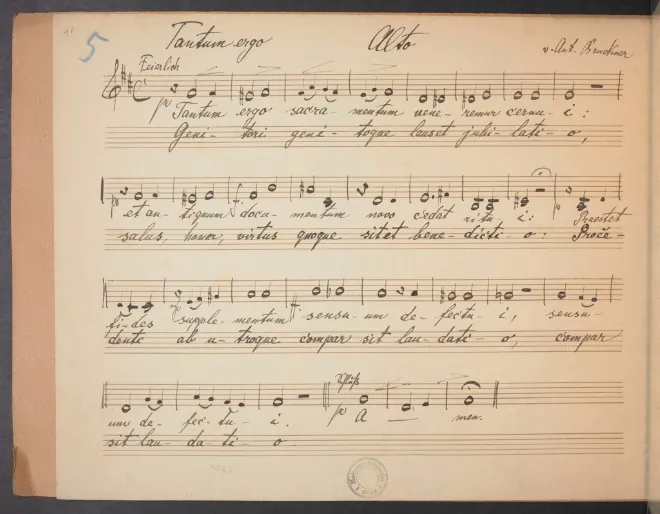 5
Tantum ergo Alto v. Ant. Bruckner
Feierlich
Tantum ergo sacra- mentum vene- remur cernu- i:
Geni- tori geni- toque laus et jubi- lati- o,
et an- tiquum docu- mentum novo cedat ritu i: Praestet
salus, honor, virtus quoque sit et bene- dicti- o: Proce-
fi- des supple- mentum sensu- um de- fectu- i, sensu-
denti ab u- troque compar sit lau- dati- o, compar
um de- fec- tu- i. A — men.
sit lau- da- ti- o